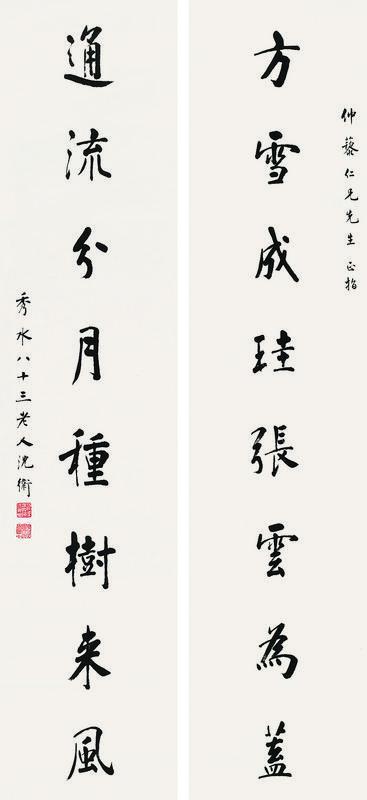 仲藜仁兄先生 正指
方雪成珪張雲為蓋
通流分月種樹来風
秀水八十三老人沈衛